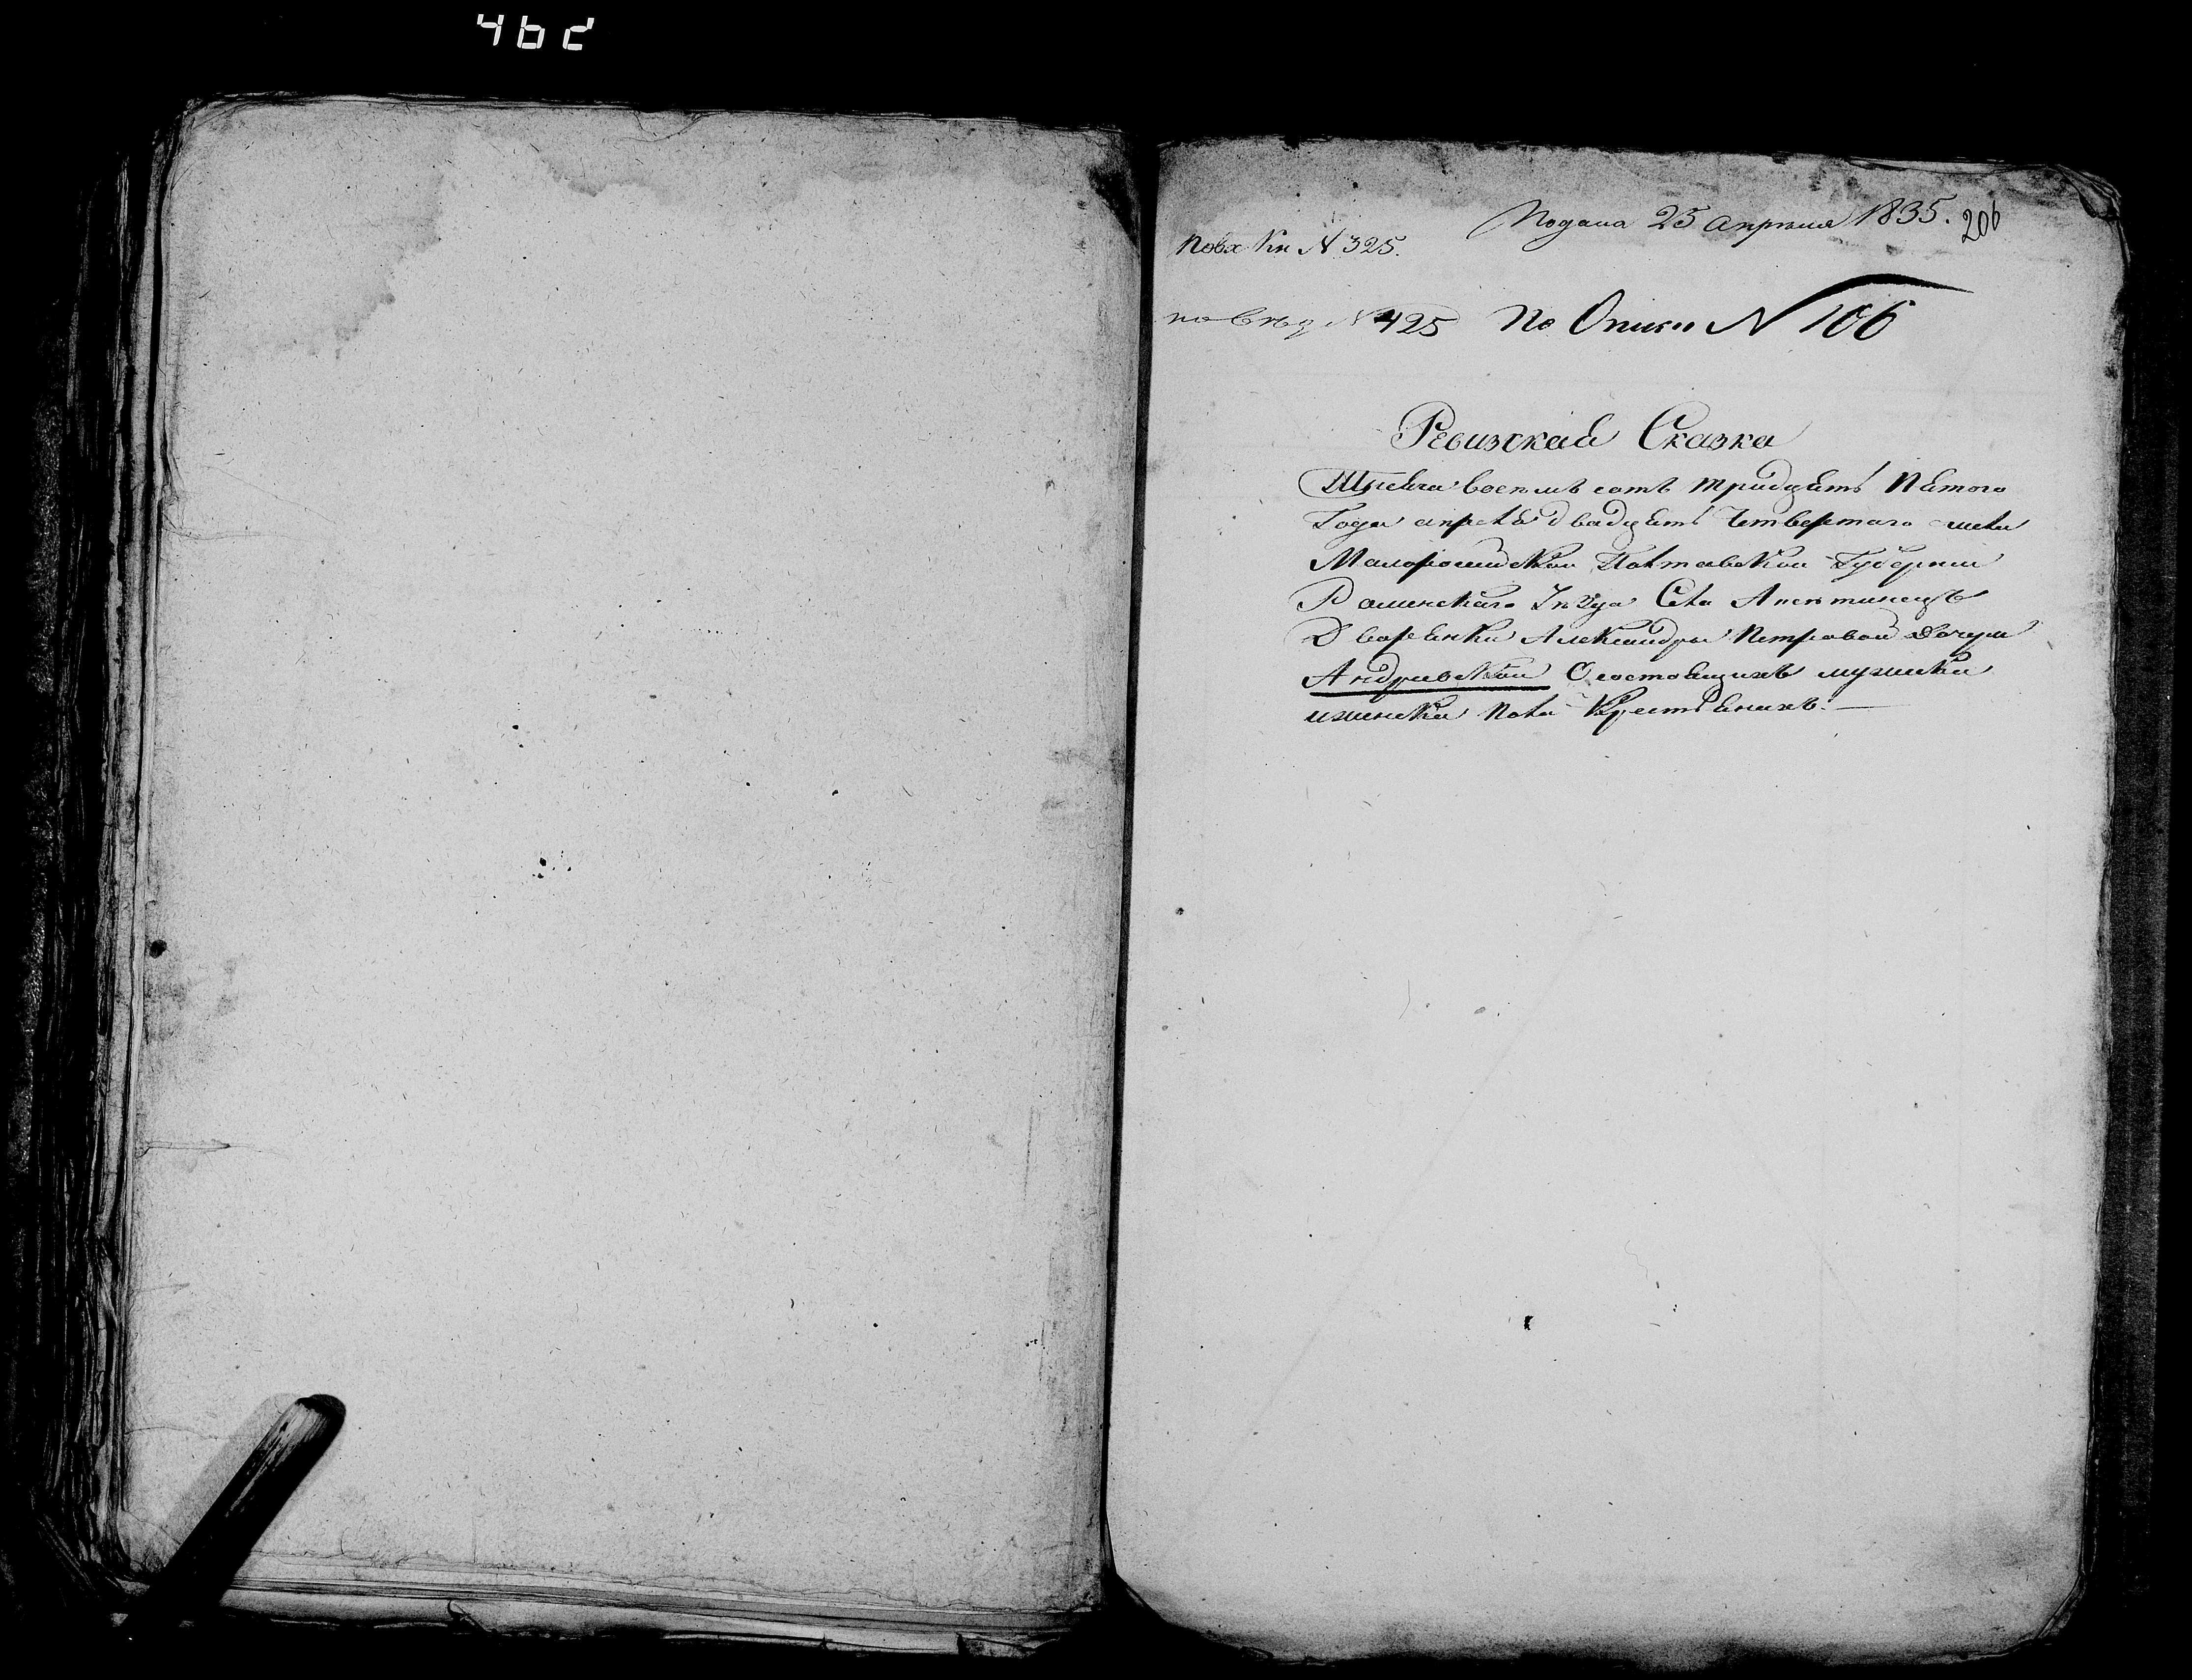 462
Подана 25 апреля 1835.
206
По вх. Кн N 325.
по Вѣд N 425 По Описи N 106
Ревизская Сказка
Тысяча восемь сотъ тридцать Пятого
Года апреля двадцать Четвертаго числа
Малоросийской Полтавской Губернии
Роменскаго Уезда Села
Дворянки Александры Петровой дочери
Андриевской О состоящихъ мужска
и женска пола Крестьянахъ. —